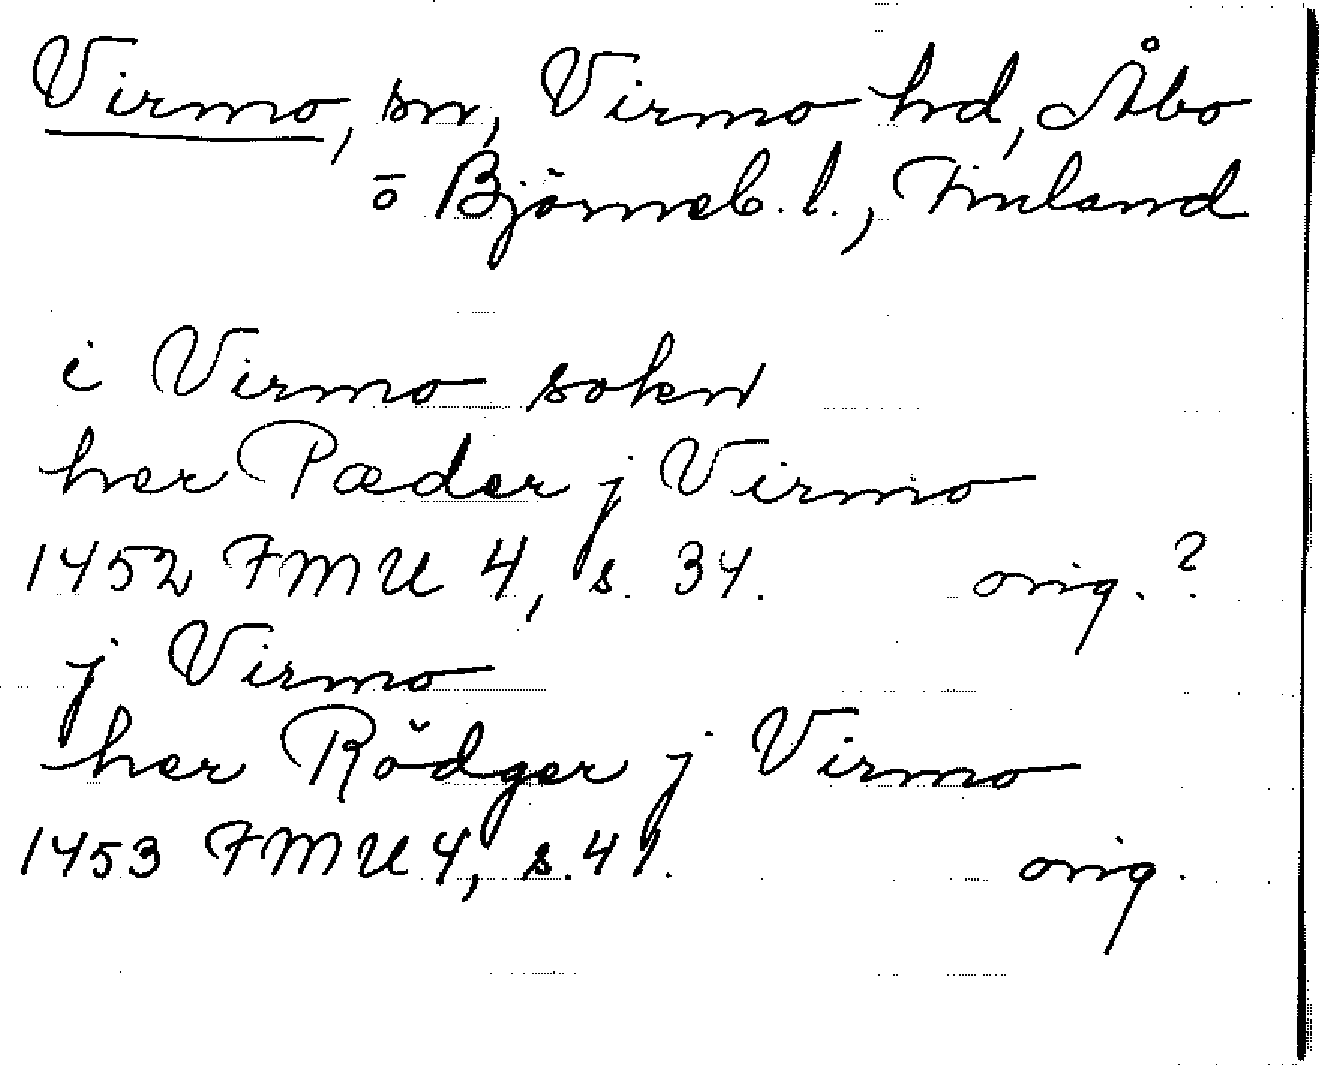 Virmo, sn, Virmo hd, Åbo
o Björneb. l., Finland
i Virmo sokn
her Pæder j Virmo
1452 FMU 4, s. 34. orig.?
j Virmo
her Rödger j Virmo
1453 FMU 4, s. 41. orig.